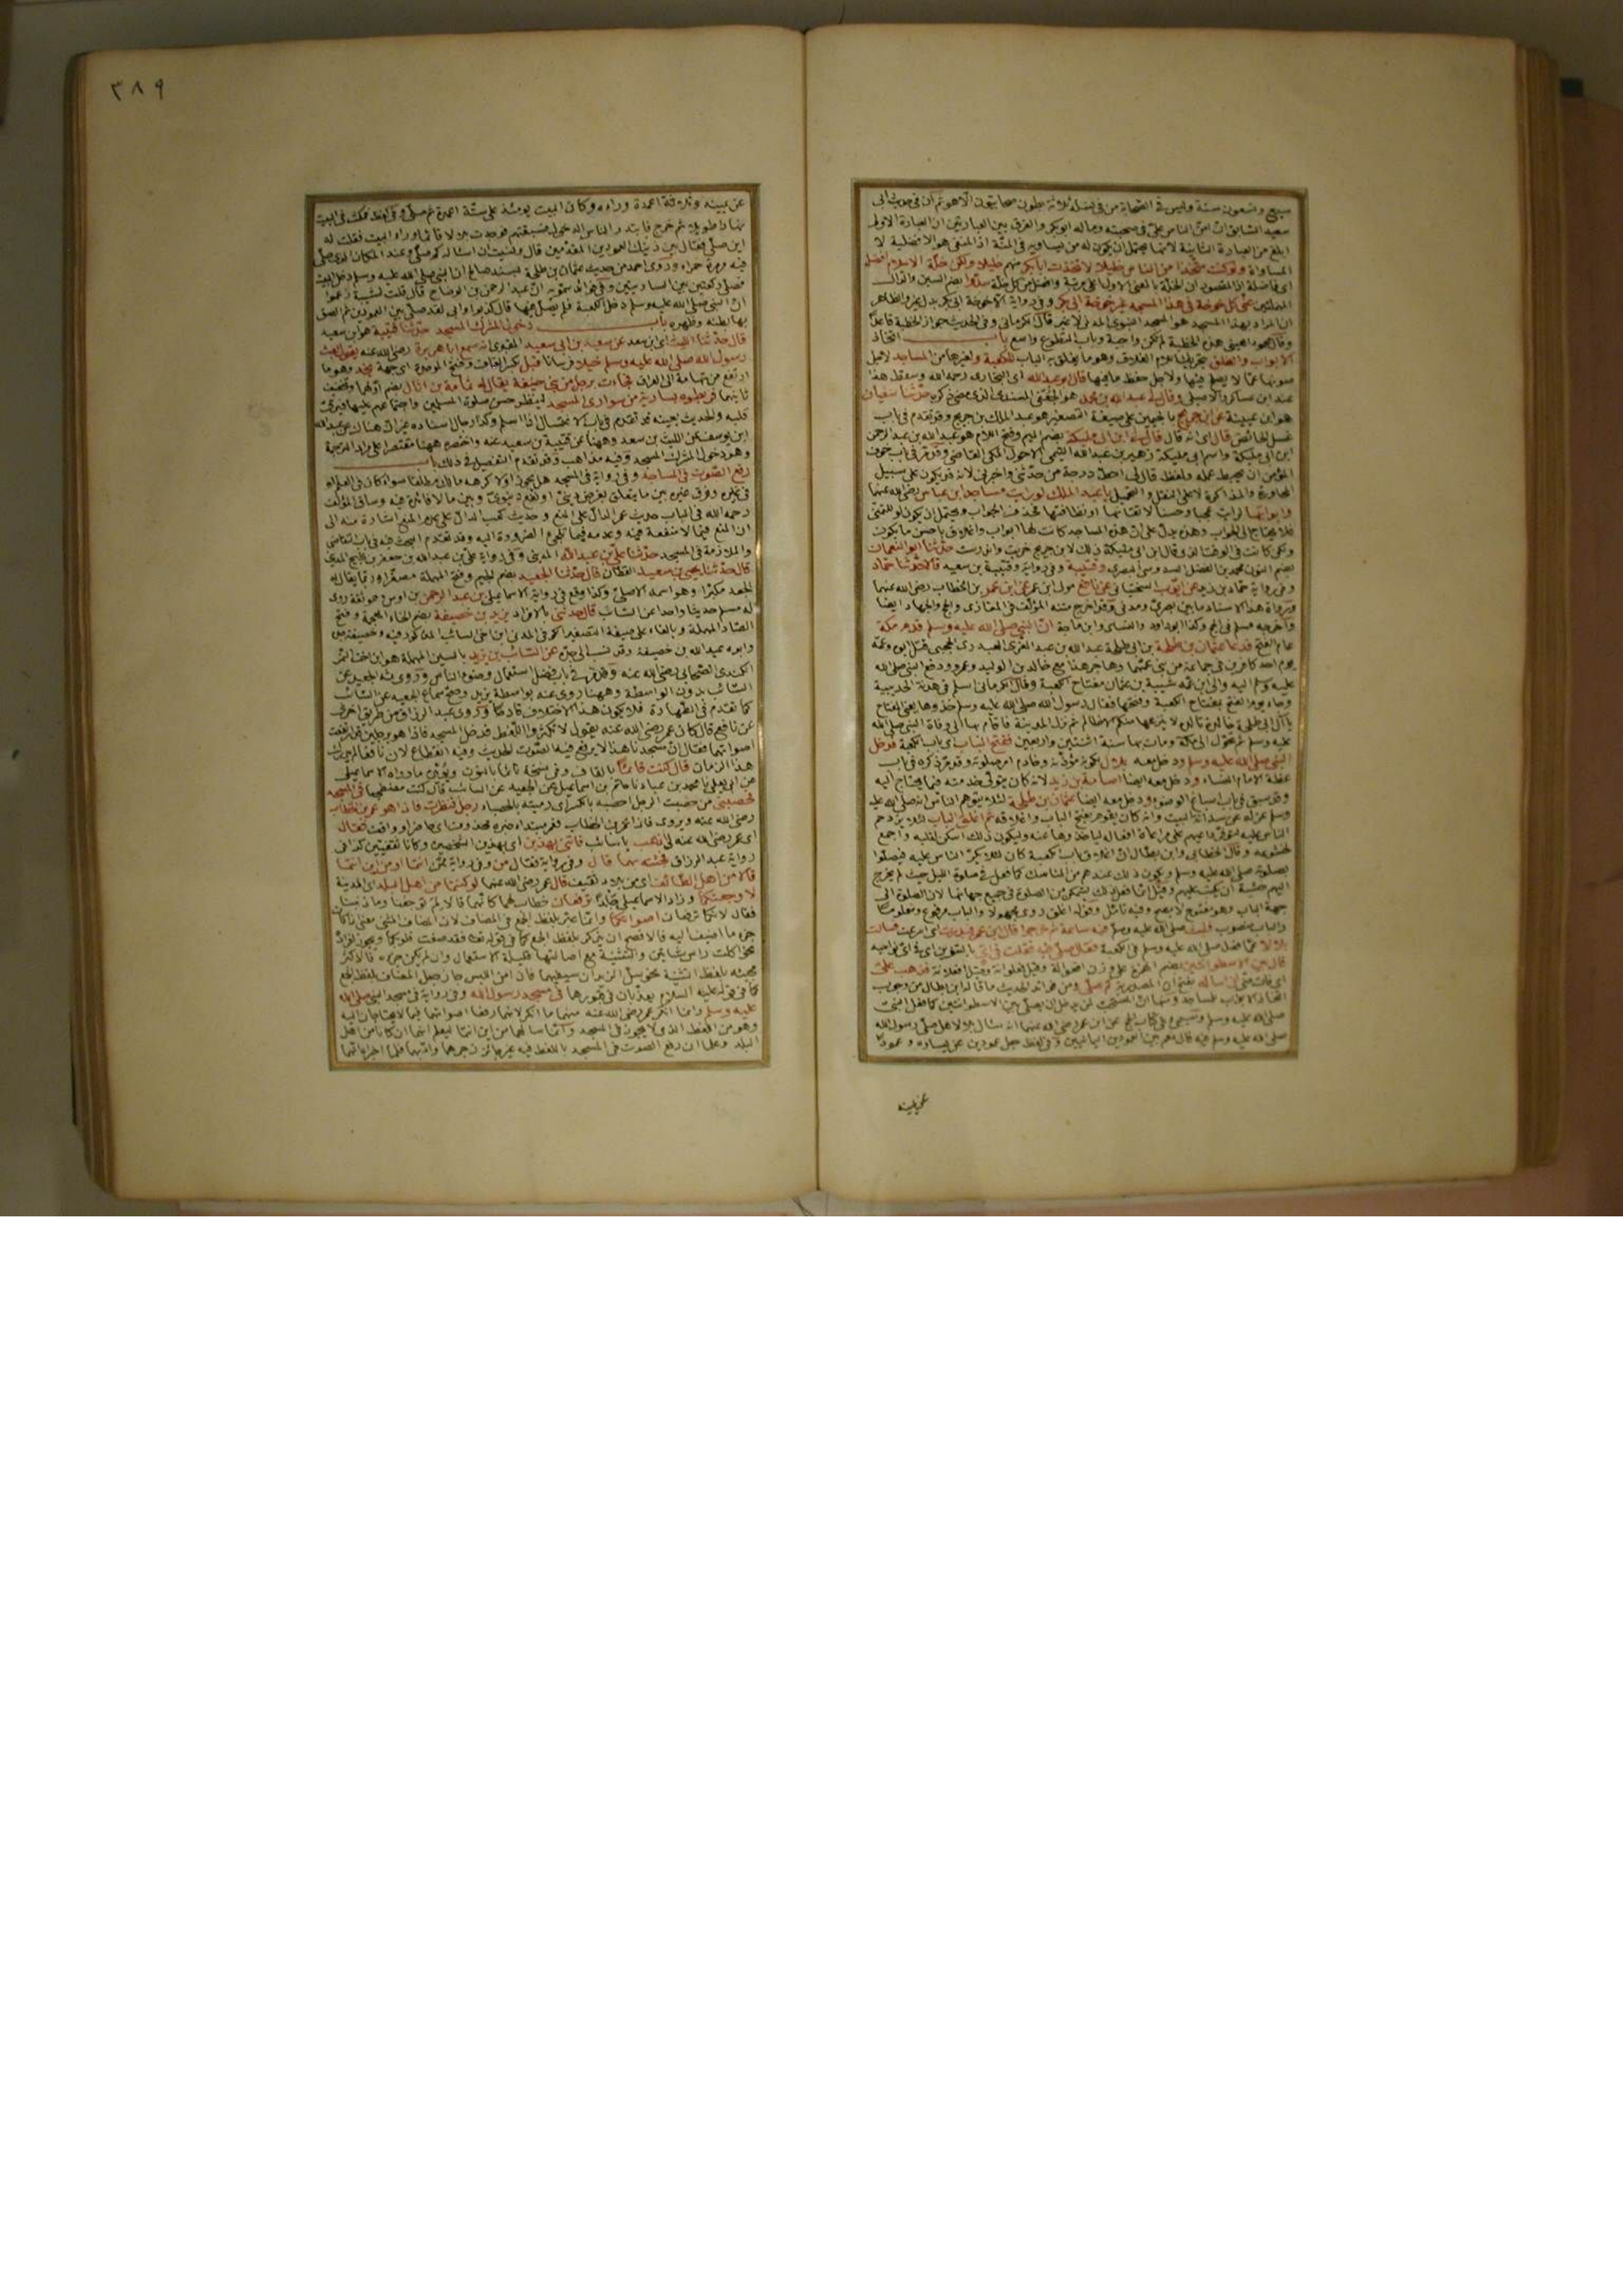 سبع وتسعون سنة وليس في الصحابة من في نسله ثلاثة بطون صحابيون الا هو ثم ان في حديث ابي
سعيد السابق ان امن الناس علي في صحبته وماله ابو بكر والفرق بين العبارتين ان العبارة الاولى
ابلغ من العبارة الثانية لانها يحتمل ان يكون له من يساويه في المنة اذ المنفي هو الافضلية لا
المساواة ولو كنت متخذا من الناس خليلا لاتخذت ابا بكر خليلا ولكن خلة الاسلام افضل
سدوا بضم السين والدال
المهملتين عني كل خوخة في هذا المسجد غير خوخة ابي بكر وفي رواية الا خوخة ابي بكر بدل غير والظاهر
ان المراد بهذا المسجد هو المسجد النبوي المدني لا غير قال الكرماني وفي الحديث جواز الخطبة قاعدا
باب اتخاذ
الابواب والغلق بتحريك اللام الغلاق وهو ما يغلق به الباب للكعبة ولغيرها من المساجد لاجل
صونها عما لا يصلح فيها ولاجل حفظ ما فيها قال ابو عبد الله اي البخاري رحمه الله وسقط هذا
عند ابن عساكر والاصيلي وقال لي عبد الله بن محمد هو الجعفي المسندي الذي مضى ذكره حدثنا سفيان
هو ابن عيينة عن ابن جريج بالجيمين على صيغة التصغير هو عبد الملك بن جريج وقد تقدم في باب
غسل الحائض قال اي انه قال قال لي ابن ابي مليكة بضم الميم وفتح اللام هو عبد الله بن عبد الرحمن
ابن ابي مليكة واسم ابي مليكة زهير بن عبد الله التيمي الاحول المكي القاضي وقد مر في باب خوف
المؤمن ان يحبط عمله ولفظ قال لي احط درجة من حدثني واخبرني لانه قد يكون على سبيل
المحاورة والمذاكرة لا على النقل والتحميل يا عبد الملك لو رايت مساجد ابن عباس رضي الله عنهما
وابوابها لرايت عجبا وحسنا لاتقانها او نظافتها فحذف الجواب ويحتمل ان يكون لو للتمني
فلا يحتاج الى الجواب وهذا يدل على ان هذه المساجد كانت لها ابواب واغلاق باحسن ما يكون
حدثنا ابو النعمان
بضم النون محمد بن الفضل السدوسي البصري وقتيبة وفي رواية وقتيبة بن سعيد قالا حدثنا حماد
وفي رواية حماد بن زيد عن ايوب السختياني عن نافع مولى ابن عمر عن ابن عمر بن الخطاب رضي الله عنهما
ورواة هذا الاسناد ما بين بصري ومدني وقد اخرج متنه المؤلف في المغازي والحج والجهاد ايضا
واخرجه مسلم في الحج وكذا ابو داود والنسائي وابن ماجة ان النبي صلى الله عليه وسلم قدم مكة
عام الفتح فدعا عثمان بن طلحة بن ابي طلحة عبد الله بن عبد العزى العبدري الحجبي قتل ابوه وعمه
يوم احد كافرين في جماعة من بني عمهما وهاجر هذا مع خالد بن الوليد وعمرو ودفع النبي صلى الله
عليه وسلم اليه والى ابن عمه شيبة بن عثمان مفتاح الكعبة وقال الكرماني اسلم في هدنة الحديبية
وجاء يوم الفتح بمفتاح الكعبة وفتحها فقال رسول الله صلى الله عليه وسلم خذوها يعني المفتاح
يا آل ابي طلحة خالدة تالدة لا ينزعها منكم الا ظالم ثم نزل المدينة فاقام بها الى وفاة النبي صلى الله
عليه وسلم ثم تحول الى مكة ومات بها سنة اثنتين واربعين ففتح الباب اي باب الكعبة فدخل
النبي صلى الله عليه وسلم ودخل معه بلال لكونه مؤذنه وخادم امر صلوته وقد مر ذكره في باب
عظة الامام النساء ودخل معه ايضا اسامة بن زيد لانه كان يتولى خدمته فيما يحتاج اليه
وقد سبق في باب اسباغ الوضوء ودخل معه ايضا عثمان بن طلحة لئلا يتوهم الناس انه صلى الله عليه
وسلم عزله عن سدانة البيت وانه كان يقوم بفتح الباب واغلاقه ثم اغلق الباب لئلا يزدحم
الناس عليه لتوفر دواعيهم على مراعاة افعاله لياخذوها عنه وليكون ذلك اسكن لقلبه واجمع
لخشوعه وقال الخطابي وابن بطال ان اغلاق باب الكعبة كان لئلا يكثر الناس عليه فيصلوا
بصلوته صلى الله عليه وسلم ويكون ذلك عندهم من المناسك كما فعل في صلوة الليل حيث لم يخرج
اليهم خشية ان يكتب عليهم وقيل انما فعل ذلك ليتمكن من الصلوة في جميع جهاتها لان الصلوة الى
جهة الباب وهو مفتوح لا يصح وفيه تأمل وقوله اغلق روي مجهولا والباب مرفوع ومعلوما
والباب منصوب فلبث صلى الله عليه وسلم فيه ساعة ثم خرجوا قال ابن عمر فبدرت اي اسرعت فسالت
بلالا عما فعل صلى الله عليه وسلم في الكعبة فقال صلى فيه فقلت في اي بالتنوين اي في اي نواحيه
قال بين الاسطوانتين بضم الهمزة على وزن افعوالة وقيل فعلوانة وقيل افعلانة فذهب علي
اي فات مني ان اساله بفتح ان المصدرية كم صلى ومن فوائد الحديث ما قاله ابن بطال من وجوب
صلى الله عليه وسلم وسيجيء في كتاب الحج عن ابن عمر رضي الله عنهما انه سال بلالا هل صلى رسول الله
صلى الله عليه وسلم فيه قال نعم بين العمودين اليمانيين وفي لفظ جعل عمودين عن يساره وعمودا
عن يمينه
٣٨٩
عن يمينه وثلاثة اعمدة وراءه وكان البيت يومئذ على ستة اعمدة ثم صلى وفي لفظ فمكث في البيت
نهارا طويلا ثم خرج فابتدر الناس الدخول فسبقتهم فوجدت بلالا قائما وراء الباب فقلت له
اين صلى فقال بين ذينك العمودين المقدمين قال ونسيت ان اساله كم صلى وعند المكان الذي صلى
فيه مرمرة حمراء وروى احمد من حديث عثمان بن طلحة بسند صالح ان النبي صلى الله عليه وسلم دخل البيت
فصلى ركعتين بين الساريتين وفي فوائد سمويه ان عبد الرحمن بن الوضاح قال قلت لشيبة زعموا
ان النبي صلى الله عليه وسلم دخل الكعبة فلم يصل فيها قال كذبوا وابي لقد صلى بين العمودين ثم الصق
بها بطنه وظهره باب دخول المشرك المسجد حدثنا قتيبة هو ابن سعيد
قال حدثنا الليث اي ابن سعد عن سعيد بن ابي سعيد المقبري انه سمع ابا هريرة رضي الله عنه يقول بعث
رسول الله صلى الله عليه وسلم خيلا فرسانا قبل بكسر القاف وفتح الموحدة اي جهة نجد وهو ما
ارتفع من تهامة الى العراق فجاءت برجل من بني حنيفة يقال له ثمامة بن اثال بضم اولهما وتخفيف
ثانيهما فربطوه بسارية من سواري المسجد لينظر حسن صلوة المسلمين واجتماعهم عليها فيرق
قلبه والحديث بعينه قد تقدم في باب الاغتسال اذا اسلم وكذا رجال اسناده غير ان هناك عن عبد الله
ابن يوسف عن الليث بن سعد وههنا عن قتيبة بن سعيد عنه واختصره ههنا مقتصرا على مراد الترجمة
وهو دخول المشرك المسجد وفيه مذاهب وقد تقدم التفصيل في ذلك باب
رفع الصوت في المساجد وفي رواية في المسجد هل يجوز او لا كرهه مالك مطلقا سواء كان في العلم او
في غيره وفرق غيره بين ما يتعلق بغرض ديني او نفع دنيوي وبين ما لا فائدة فيه وساق المؤلف
رحمه الله في الباب حديث عمر الدال على المنع وحديث كعب الدال على عدم المنع اشارة منه الى
ان المنع فيما لا منفعة فيه وعدمه فيما تلجئ الضرورة اليه وقد تقدم البحث فيه في باب التقاضي
والملازمة في المسجد حدثنا علي بن عبد الله المديني وفي رواية علي بن عبد الله بن جعفر بن نجيح المديني
قال حدثنا يحيى بن سعيد القطان قال حدثنا الجعيد بضم الجيم وفتح المهملة مصغرا وربما يقال له
الجعد مكبرا وهو اسمه الاصلي وكذا وقع في رواية الاسماعيلي بن عبد الرحمن بن اوس وهو ثقة روى
له مسلم حديثا واحدا عن السائب قال حدثني بالافراد يزيد بن خصيفة بضم الخاء المعجمة وفتح
الصاد المهملة وبالفاء على صيغة التصغير الكوفي المدني ابن اخي السائب المذكور فيه وخصيفة جده
وابوه عبد الله بن خصيفة وقد نسب الى جده عن السائب بن يزيد بالسين المهملة هو ابن اخت النمر
الكندي الصحابي رضي الله عنه وقد مر في باب فضل استعمال وضوء الناس وروى عنه الجعيد عن
السائب بدون الواسطة وههنا روى عنه بواسطة يزيد وصح سماع الجعيد عن السائب
كما تقدم في الطهارة فلا يكون هذا الاختلاف قادحا وروى عبد الرزاق من طريق اخرى
عن نافع قال كان عمر رضي الله عنه يقول لا تكثروا اللغط فدخل المسجد فاذا هو برجلين قد ارتفعت
اصواتهما فقال ان مسجدنا هذا لا يرفع فيه الصوت الحديث وفيه انقطاع لان نافعا لم يدرك
هذا الزمان قال كنت قائما بالقاف وفي نسخة نائما بالنون ويؤيده ما رواه الاسماعيلي
عن ابي يعلى نا محمد بن عباد نا حاتم بن اسماعيل عن الجعيد عن السائب قال كنت مضطجعا في المسجد
فحصبني من حصبت الرجل احصبه بالكسر اي رميته بالحصباء رجل فنظرت فاذا هو عمر بن الخطاب
رضي الله عنه ويروى فاذا عمر بن الخطاب فعمر مبتدا وخبره محذوف اي حاضر او واقف فقال
اي عمر رضي الله عنه لي اذهب يا سائب فاتني بهذين اي بهذين الشخصين وكانا ثقفيين كذا في
رواية عبد الرزاق فجئته بهما قال وفي رواية فقال من وفي رواية ممن انتما او من اين انتما
قالا من اهل الطائف اي من بلاد ثقيف قال عمر رضي الله عنهما لو كنتما من اهل البلد اي المدينة
لاوجعتكما وزاد الاسماعيلي جلدا ترفعان خطاب لهما كانهما قالا لم توجعنا وماذنبنا
فقال لانكما ترفعان اصواتكما وانما عبر بلفظ الجمع في المضاف لان المضاف المثنى معنى اذا كان
جزء ما اضيف اليه فالافصح ان يذكر بلفظ الجمع كما في قوله تعالى فقد صغت قلوبكما ويجوز افراده
نحو اكلت راس شاتين والتثنية مع اصالتها قليلة الاستعمال وان لم يكن جزءه فالاكثر
مجيئه بلفظ التثنية نحو سل الزيدان سيفيهما فان امن اللبس جاز جعل المضاف بلفظ الجمع
كما في قوله عليه السلام يعذبان في قبورهما في مسجد رسول الله وفي رواية في مسجد النبي صلى الله
عليه وسلم وانما انكر عمر رضي الله عنه منهما ما انكر لانهما رفعا اصواتهما فيما لا يحتاجان اليه
وهو من اللغط الذي لا يجوز في المسجد وانما سالهما من اين انتما ليعلم انهما ان كانا من اهل
البلد وعلما ان رفع الصوت في المسجد باللغط فيه غير جائز زجرهما وادبهما فلما اخبراه انهما